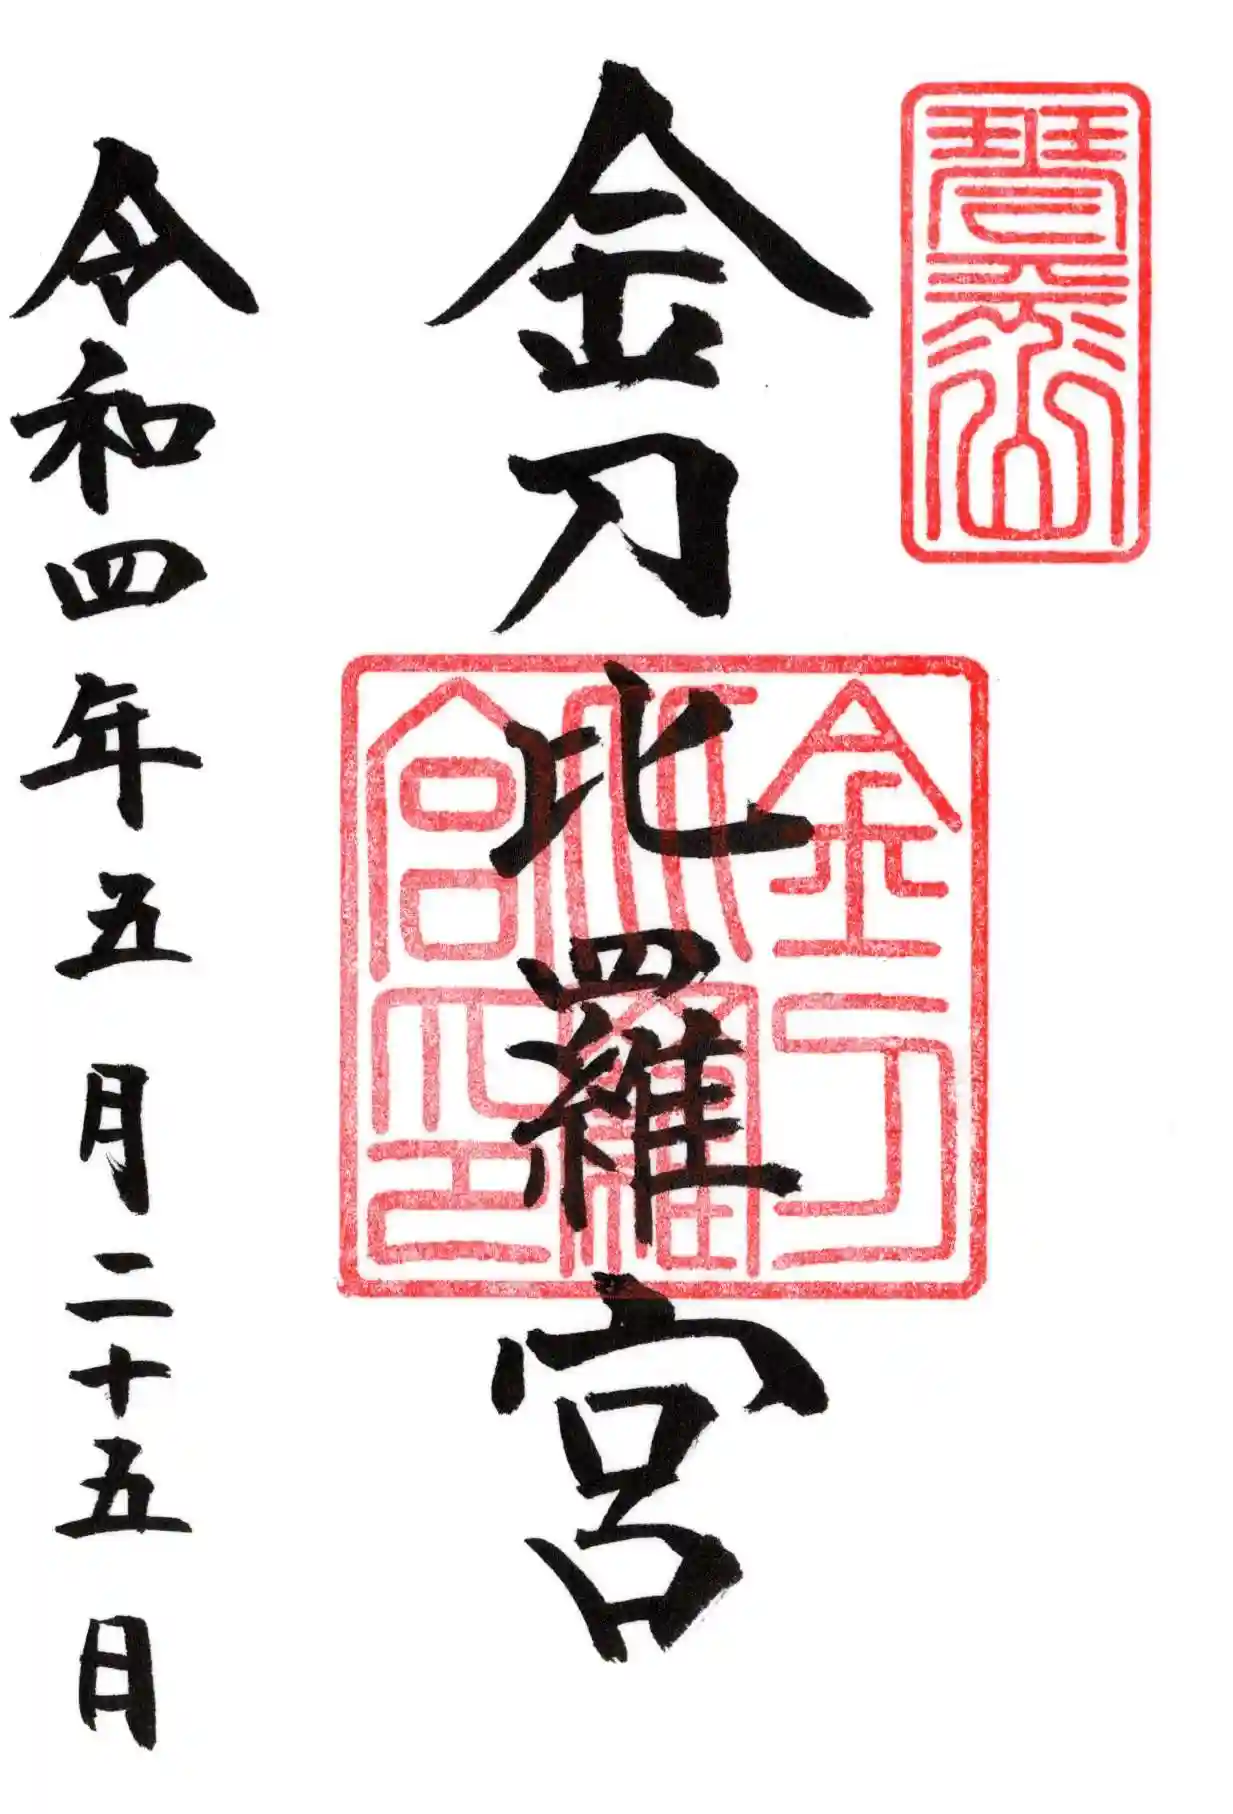 琴平山
金刀比羅宮
金刀
比羅
宮印
令和四年五月二十五日